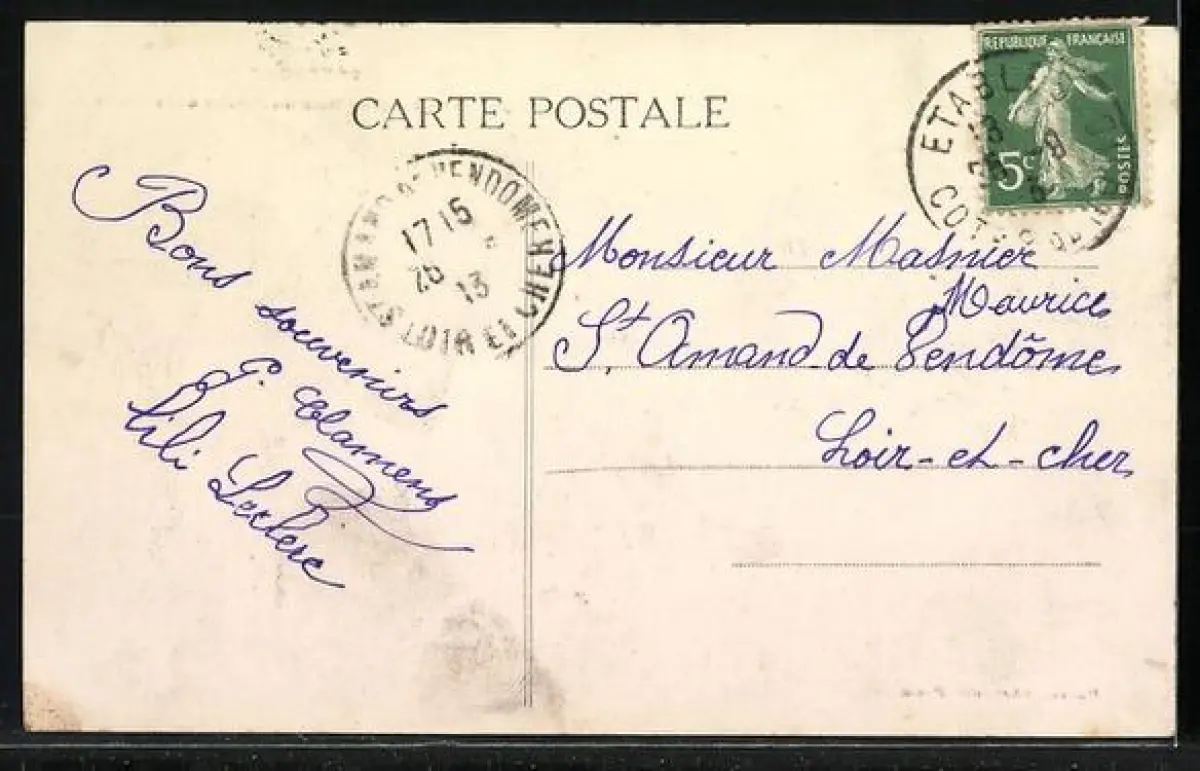 CARTE POSTALE
REPUBLIQUE FRANÇAISE
5c
POSTES
ETABLES
COTES DU NORD
ST AMAND DE VENDOME
17 15
26 13
LOIR ET CHER
Bons souvenirs
G. Clamens
Lili Leclerc
Monsieur Masnier
Maurice
St. Amand de Vendôme
Loir-et-cher